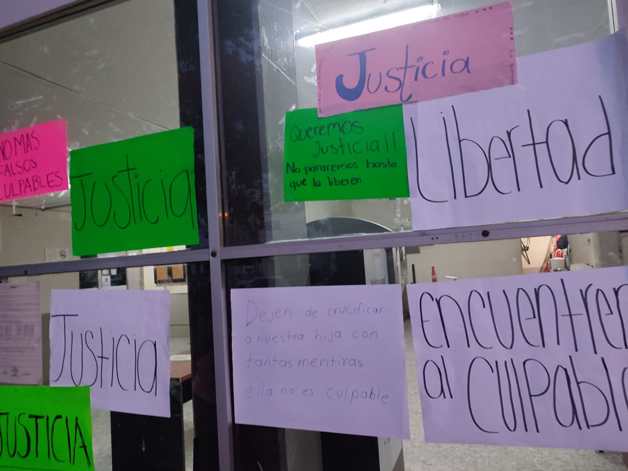 Justicia
NO MAS
FALSOS
CULPABLES
Justicia
Queremos
Justicia!!
No pararemos hasta
que la liberen
Libertad
Justicia
Dejen de crucificar
a nuestra hija con
tantas mentiras
ella no es culpable
encuentren
al culpable
JUSTICIA